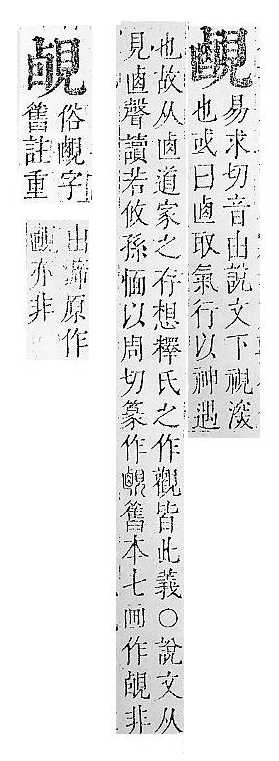 䚃
易求切音由說文下視深
也或曰卣取氣行以神遇
也故从卣道家之存想釋氏之作觀皆此義○說文从
見卣聲讀若攸孫愐以周切篆作舊本七画作非
俗䚃字
舊註重
出原作
亦非